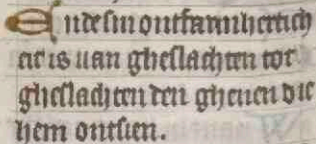 Ende sin ontfarmhertich
eit is uan gheslachten tot
gheslachten den ghenen die
hem ontsien.